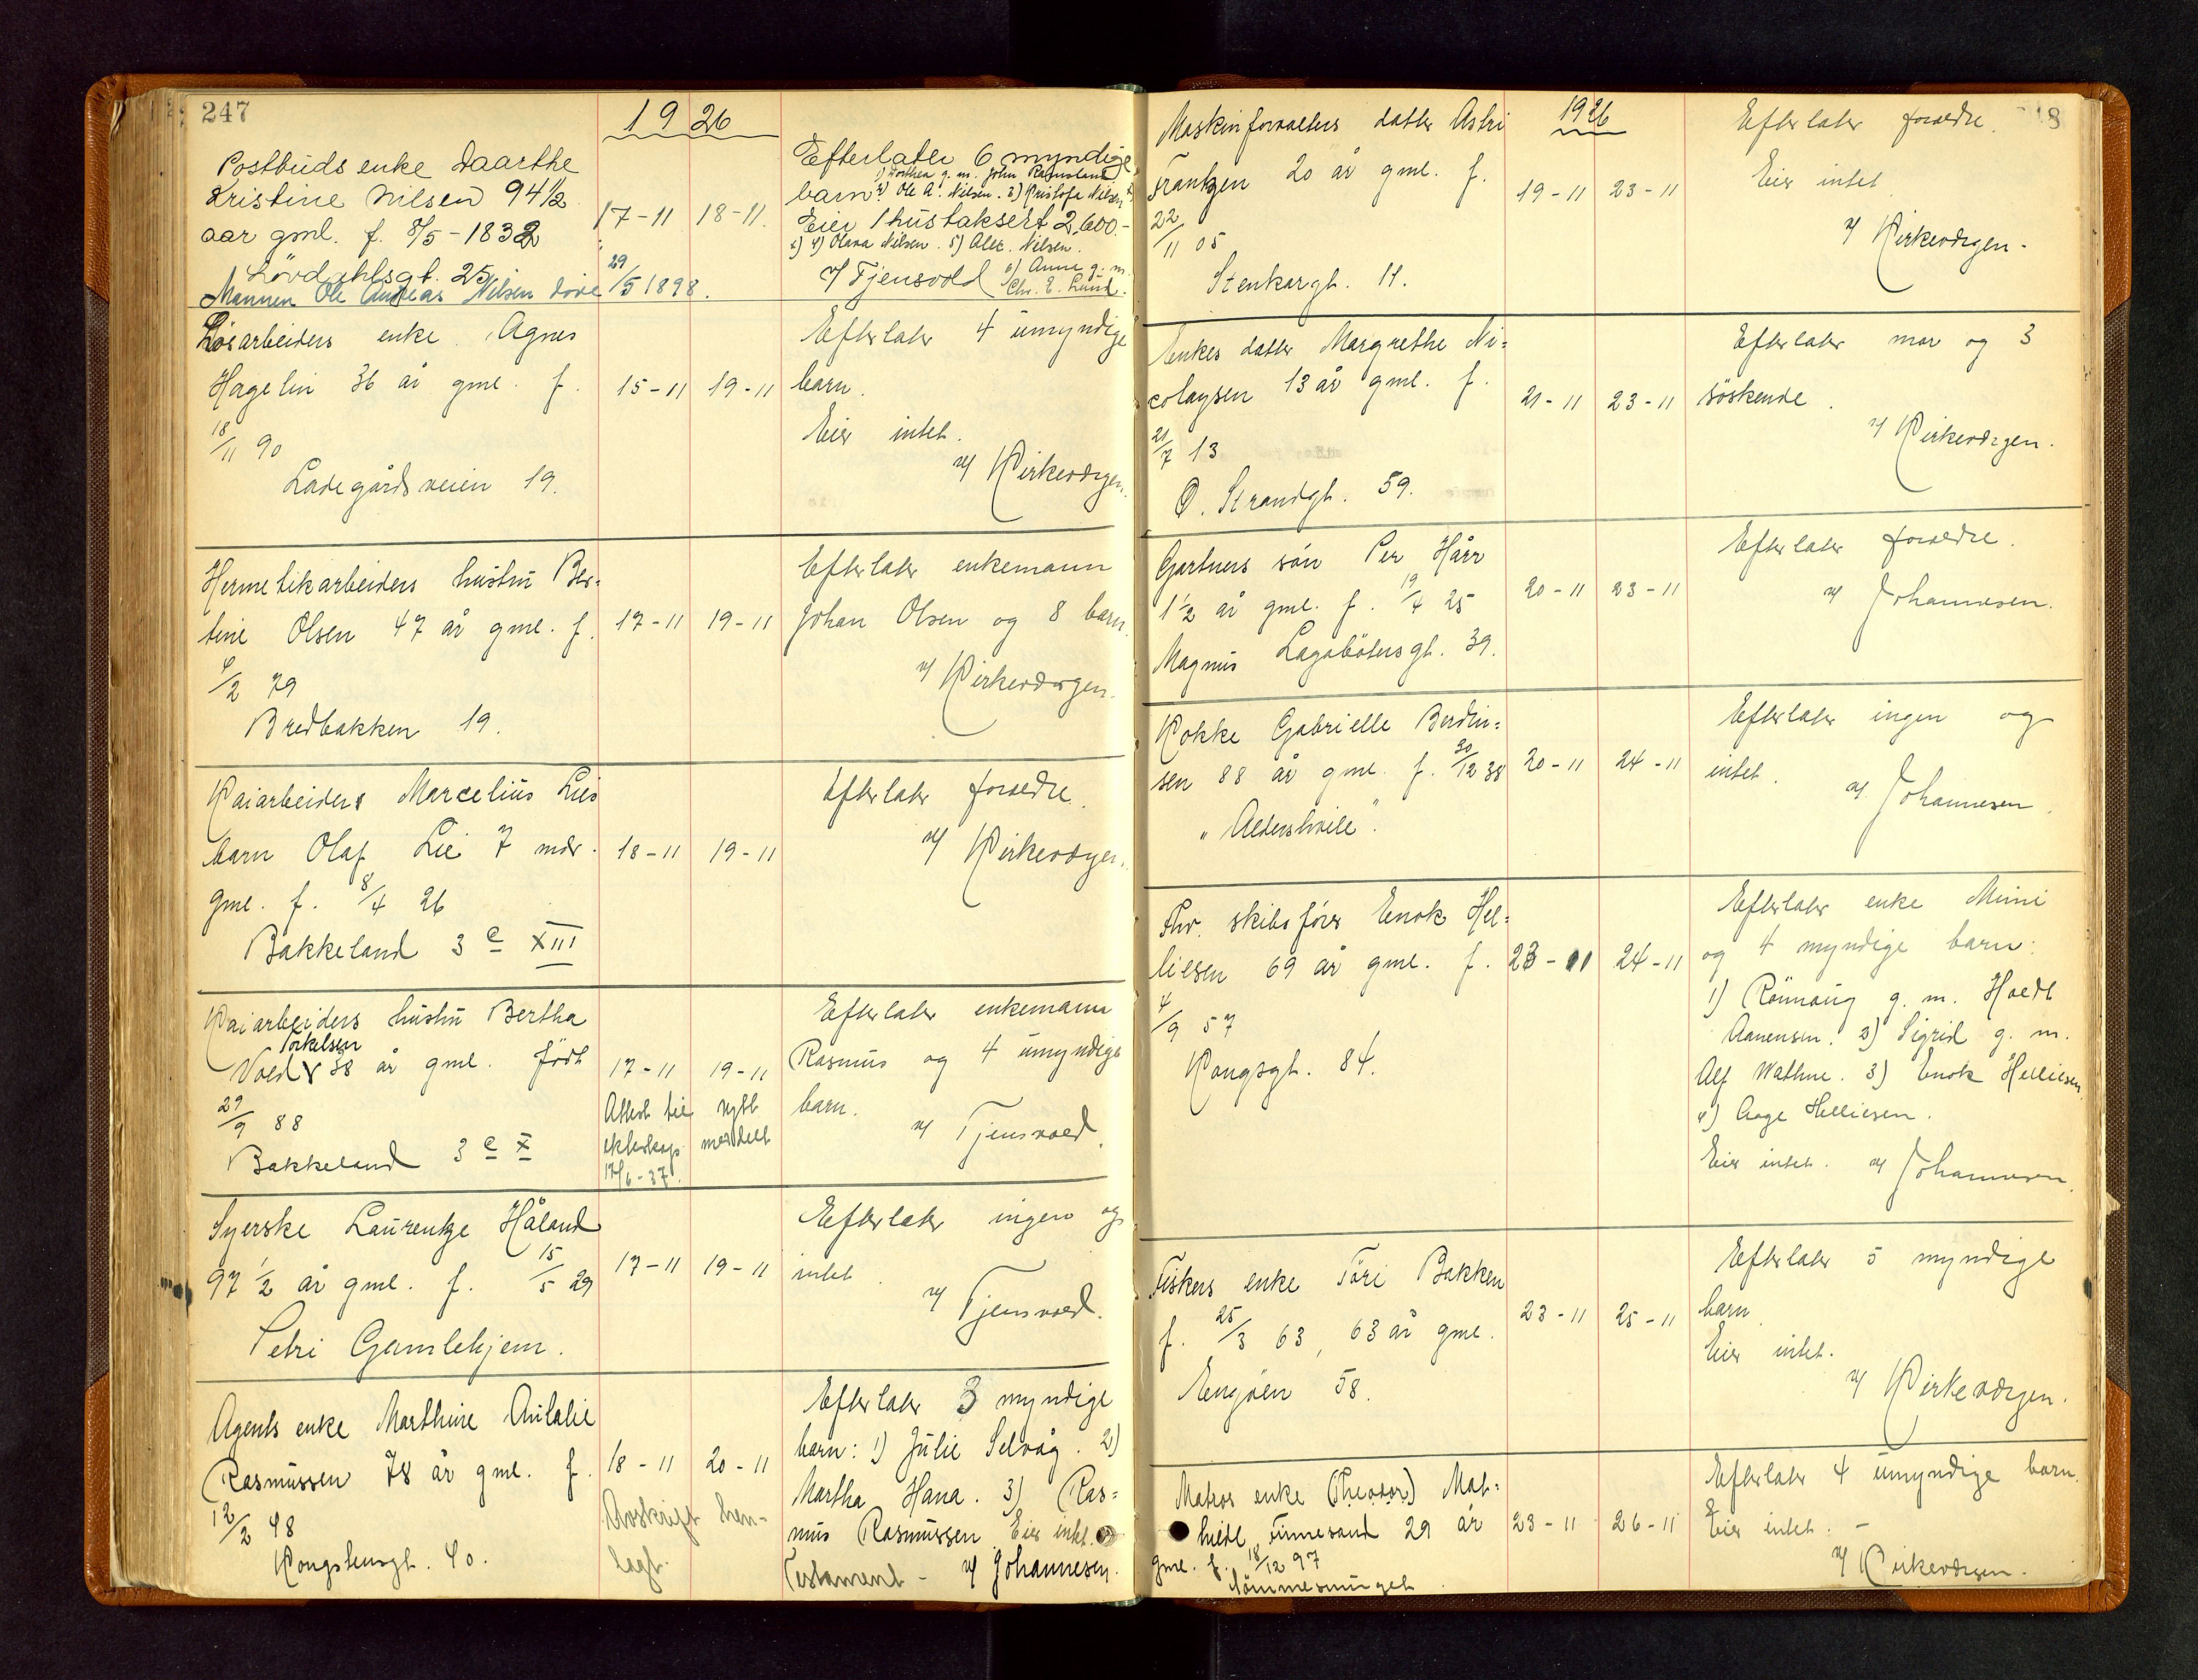 247
1926
Postbuds enke Daarthe
Kristine Nilsen 94½
aar gml. f. 8/5-1832
Lövdahlsgt. 25
Mannen Ole Andreas Nilsen döde 29/5 1898.
17-11 18-11.
Efterlater 6 myndige
1) Dorthea g. m. John Ramsland
barn 2) Ole A. Nilsen. 3) Kristofe Nilsen
Eier 1 hus taksert 2,600.-
4) Olava Nilsen. 5) Alex. Nilsen.
v/ Tjensvold 6) Anne g. m.
Chr. E. Lund.
Lösarbeiders enke Agnes
Hagelin 36 år gml. f.
18/11 90
Ladegårdsveien 19.
15-11 19-11
Efterlater 4 umyndige
barn.
Eier intet.
v/ Kirkevergen.
Hermetikarbeiders hustru Ber=
tine Olsen 47 år gml. f.
9/2 79
Bredbakken 19.
17-11 19-11
Efterlater enkemann
Johan Olsen og 8 barn.
v/ Kirkevergen.
Kaiarbeiders Marcelius Lies
barn Olaf Lie 7 mdr.
gml. f. 8/4 26
Bakkeland 3 c XIII
18-11 19-11
Efterlater foreldre.
v/ Kirkevergen.
Kaiarbeiders hustru Bertha
Torkelsen
Vold 38 år gml. född
29/9 88
Bakkeland 3 c X
17-11 19-11
Attest til nytt
ekteskap meddelt
17/6-37.
Efterlater enkemann
Rasmus og 4 umyndige
barn.
v/ Tjensvold.
Syerske Laurentze Håland
97½ år gml. f. 15/5 29
Petri Gamlehjem.
17-11 19-11
Efterlater ingen og
intet.
v/ Tjensvold.
Agents enke Marthine Aulalie
Rasmussen 78 år gml. f.
12/2 48
Kongshusgt. 40.
18-11 20-11
Avskrift hen-
lagt.
Efterlater 3 myndige
barn: 1) Julie Selvåg. 2)
Martha Hana. 3) Ras=
mus Rasmussen. Eier intet.
Testament - v/ Johannesen.
8
1926
Maskinforvalters datter Astri
Frantzen 20 år gml. f.
22/11 05
Stenkargt. 11.
19-11 23-11
Efterlater foreldre.
Eier intet.
v/ Kirkevergen.
Enkes datter Margrethe Ni=
colaysen 13 år gml. f.
21/7 13
Ö. Strandgt. 59.
21-11 23-11
Efterlater mor og 3
söskende.
v/ Kirkevergen.
Gartners sön Per Hårr
1½ år gml. f. 19/4 25
Magnus Lagabötersgt. 39.
20-11 23-11
Efterlater foreldre.
v/ Johannesen.
Kokke Gabrielle Berdin=
sen 88 år gml. f. 30/12 38
"Aldershvile".
20-11 24-11
Efterlater ingen og
intet.
v/ Johannesen.
Fhv. skibsförer Enok Hel=
liesen 69 år gml. f.
4/9 57
Kongsgt. 84.
23-11 24-11
Efterlater enke Mimi
og 4 myndige barn:
1) Rönnaug g. m. Hoedt
Aanensen. 2) Sigrid g. m.
Alf Wathne. 3) Enok Helliesen
4) Aage Helliesen.
Eier intet. v/ Johannesen.
Fiskers enke Töri Bakken
f. 25/3 63, 63 år gml.
Engöen 58.
23-11 25-11
Efterlater 5 myndige
barn
Eier intet.
v/ Kirkevergen.
Matros enke (Theodor) Mat=
hilde Finnesand 29 år
gml. f. 18/12 97
23-11 26-11
Efterlater 4 umyndige barn.
Eier intet. -
v/ Kirkevergen.